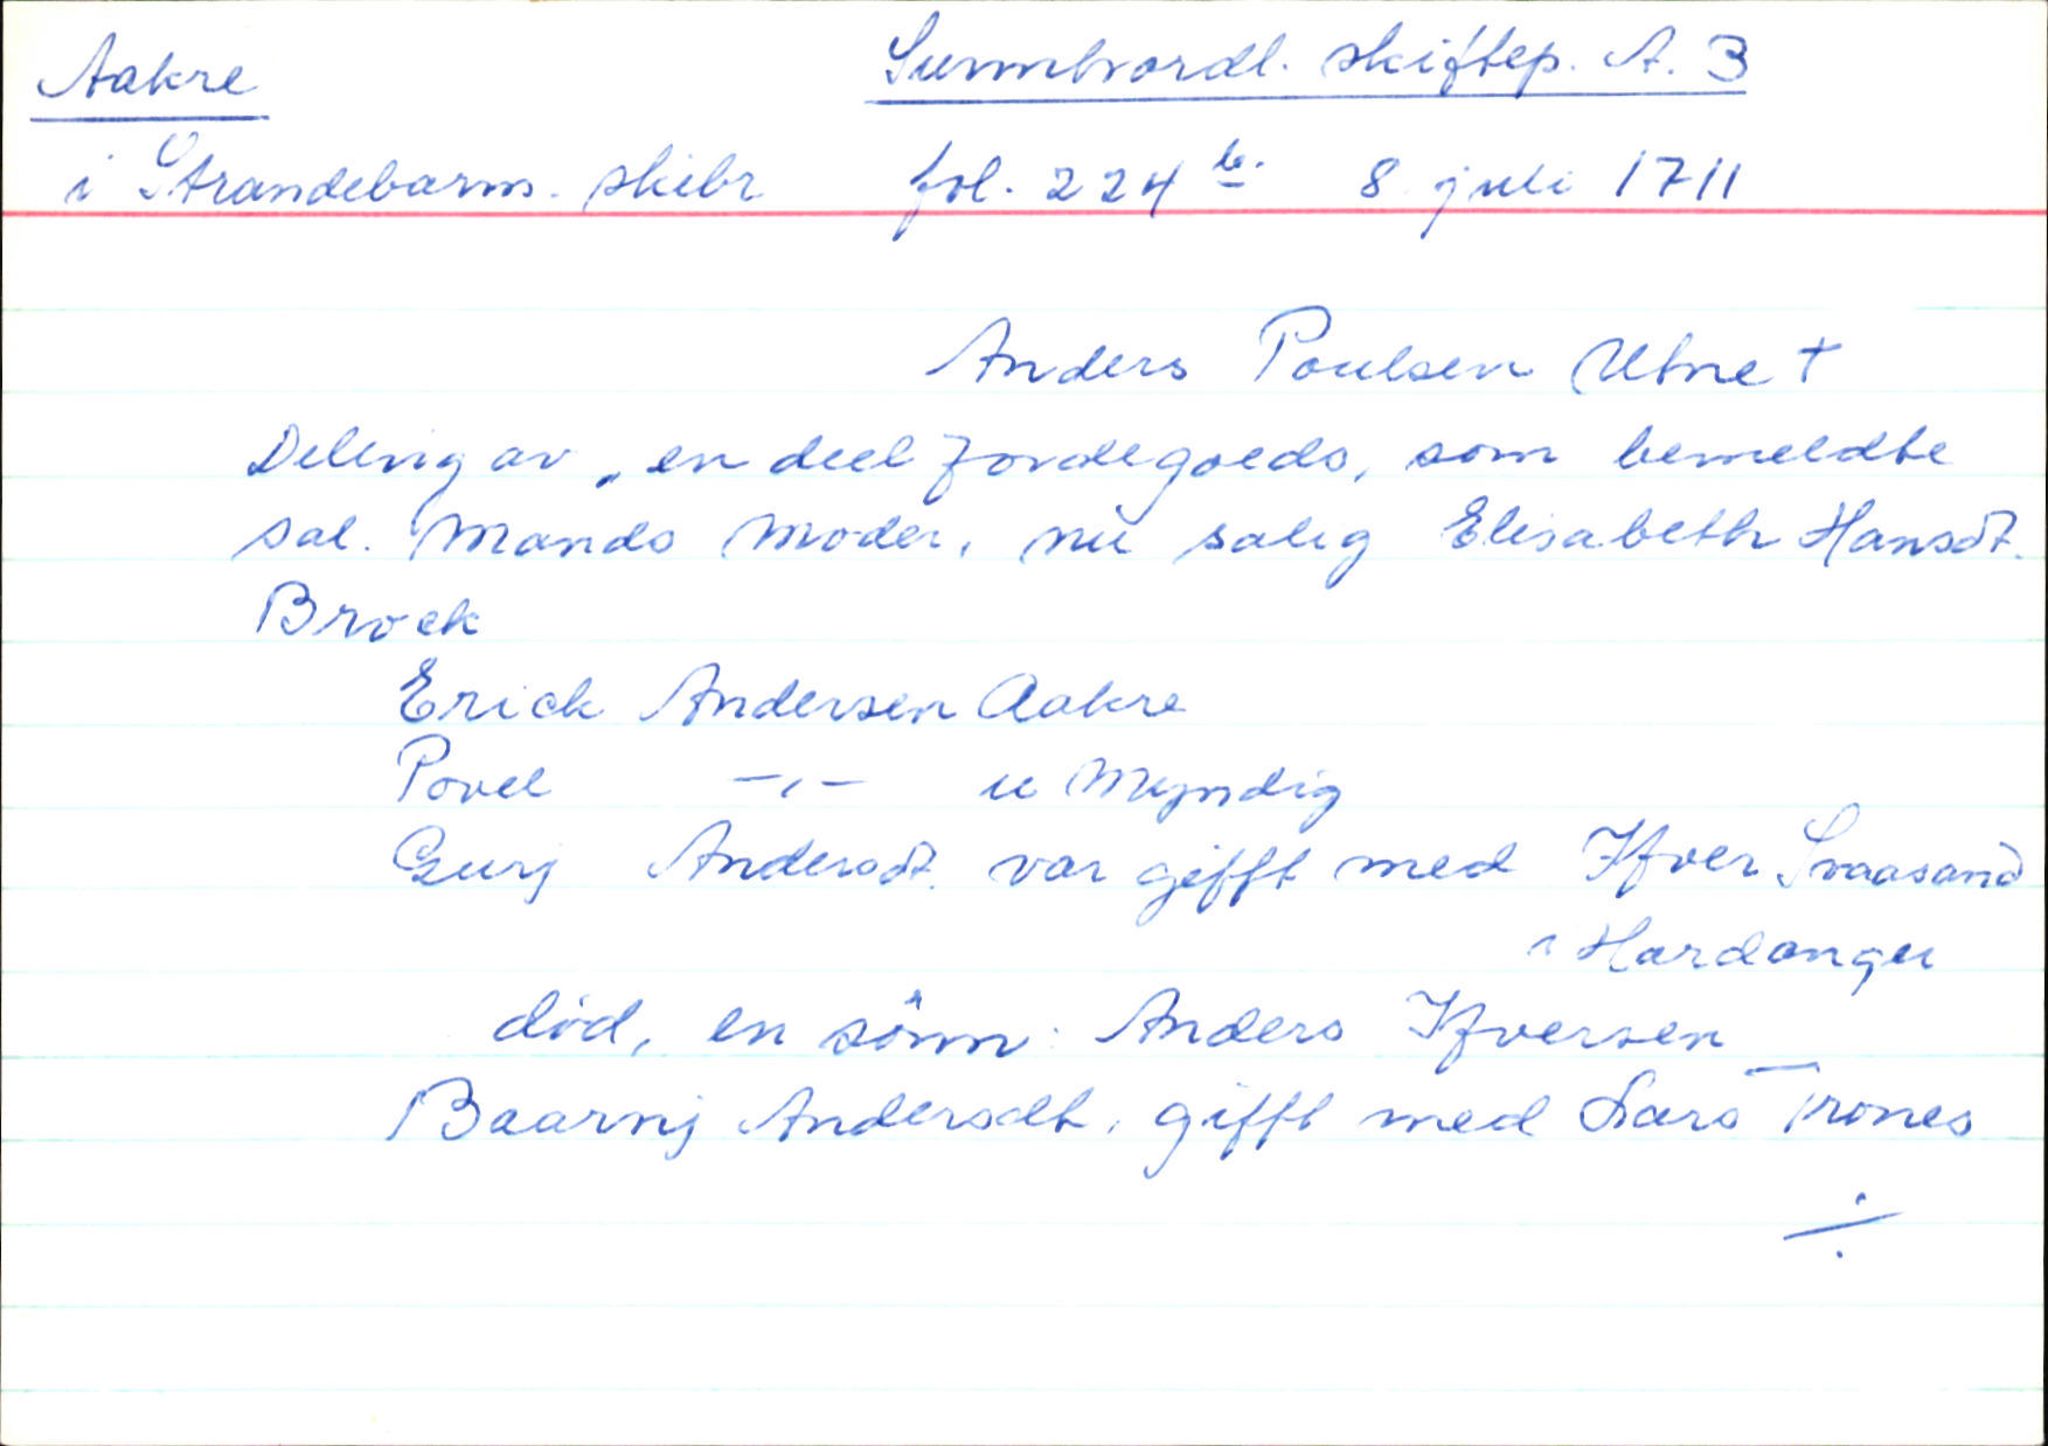 Aakre Sunnhordl. skiftep. A. 3
i Strandebarms. skibr fol. 224 b. 8. juli 1711
Anders Poulsen Utne †
Deling av „en deel Jordegoeds, som bemeldte
sal. Mands Moder, nu salig Elisabeth Hansdt.
Brock
Erick Andersen Aakre
Povel —„— u Myndig
Gurj Andersdt. var gifft med Ifver Svaasand
i Hardanger
död, en sönn: Anders Ifversen
Baarnj Andersdt. gifft med Lars Trones